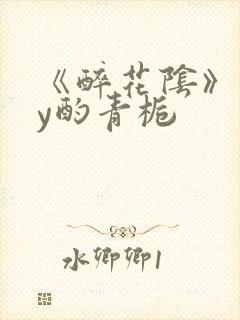 《醉花陰》
y酌青梔
水卿卿1